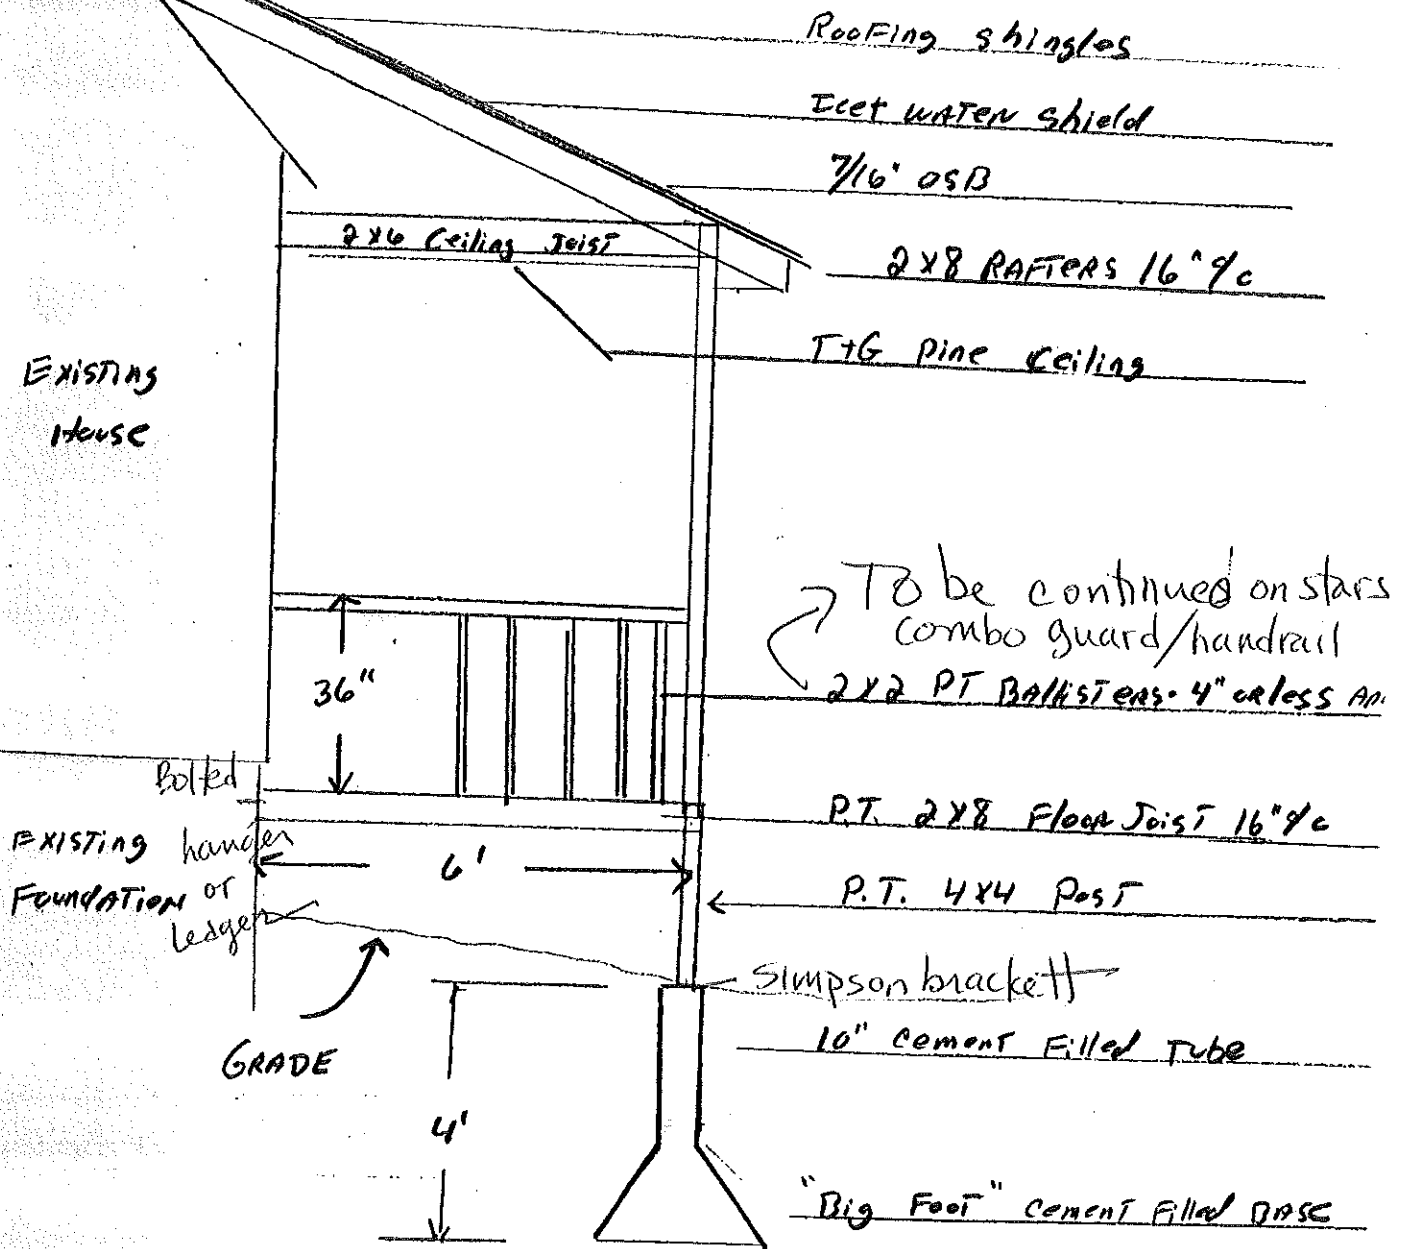 Roofing shingles
Ice+ water shield
7/16" OSB
2x6 Ceiling Joist
2x8 RAFTERS 16" o/c
T+G pine ceiling
Existing
House
To be continued on stars
combo guard/handrail
36"
2x2 PT Ballisters. 4" or less
Bolted
P.T. 2x8 Floor Joist 16" o/c
Existing hanger
6'
Foundation or
Ledger
P.T. 4x4 Post
Simpson brackett
GRADE
10" cement Filled Tube
4'
"Big Foot" Cement Filled BASE